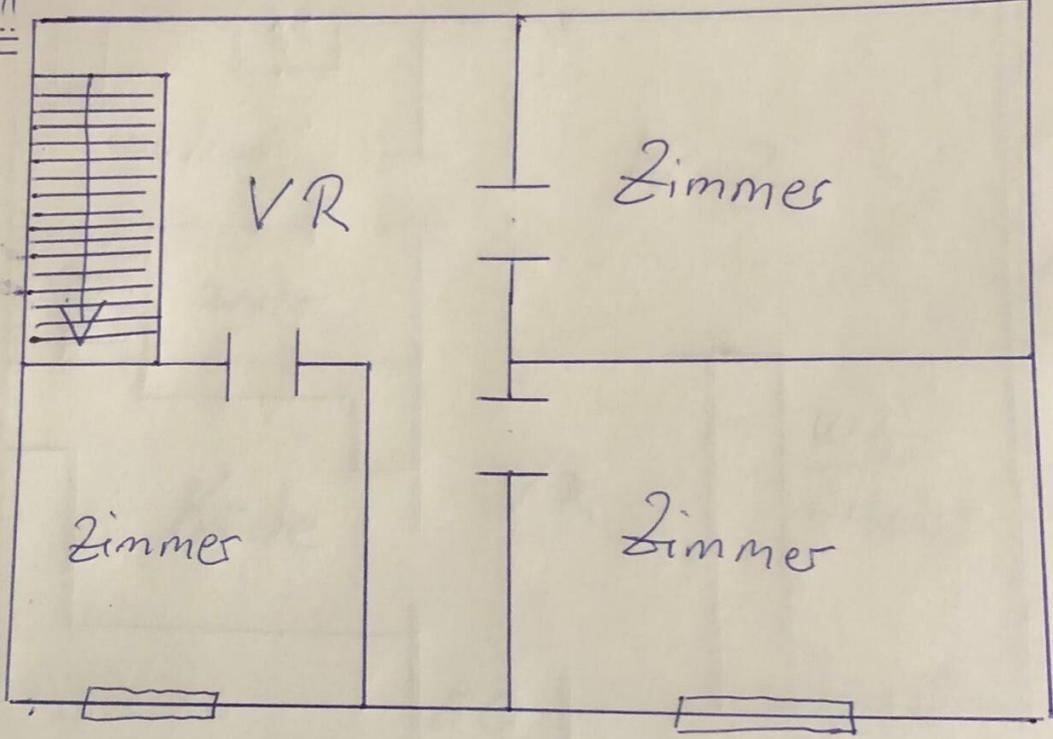 VR
Zimmer
Zimmer
Zimmer